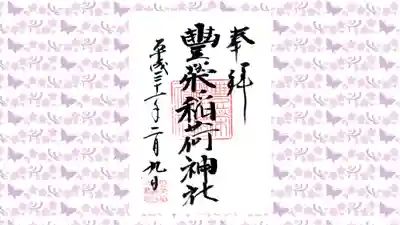 奉拝
豊栄稲荷神社
平成三十一年二月九日